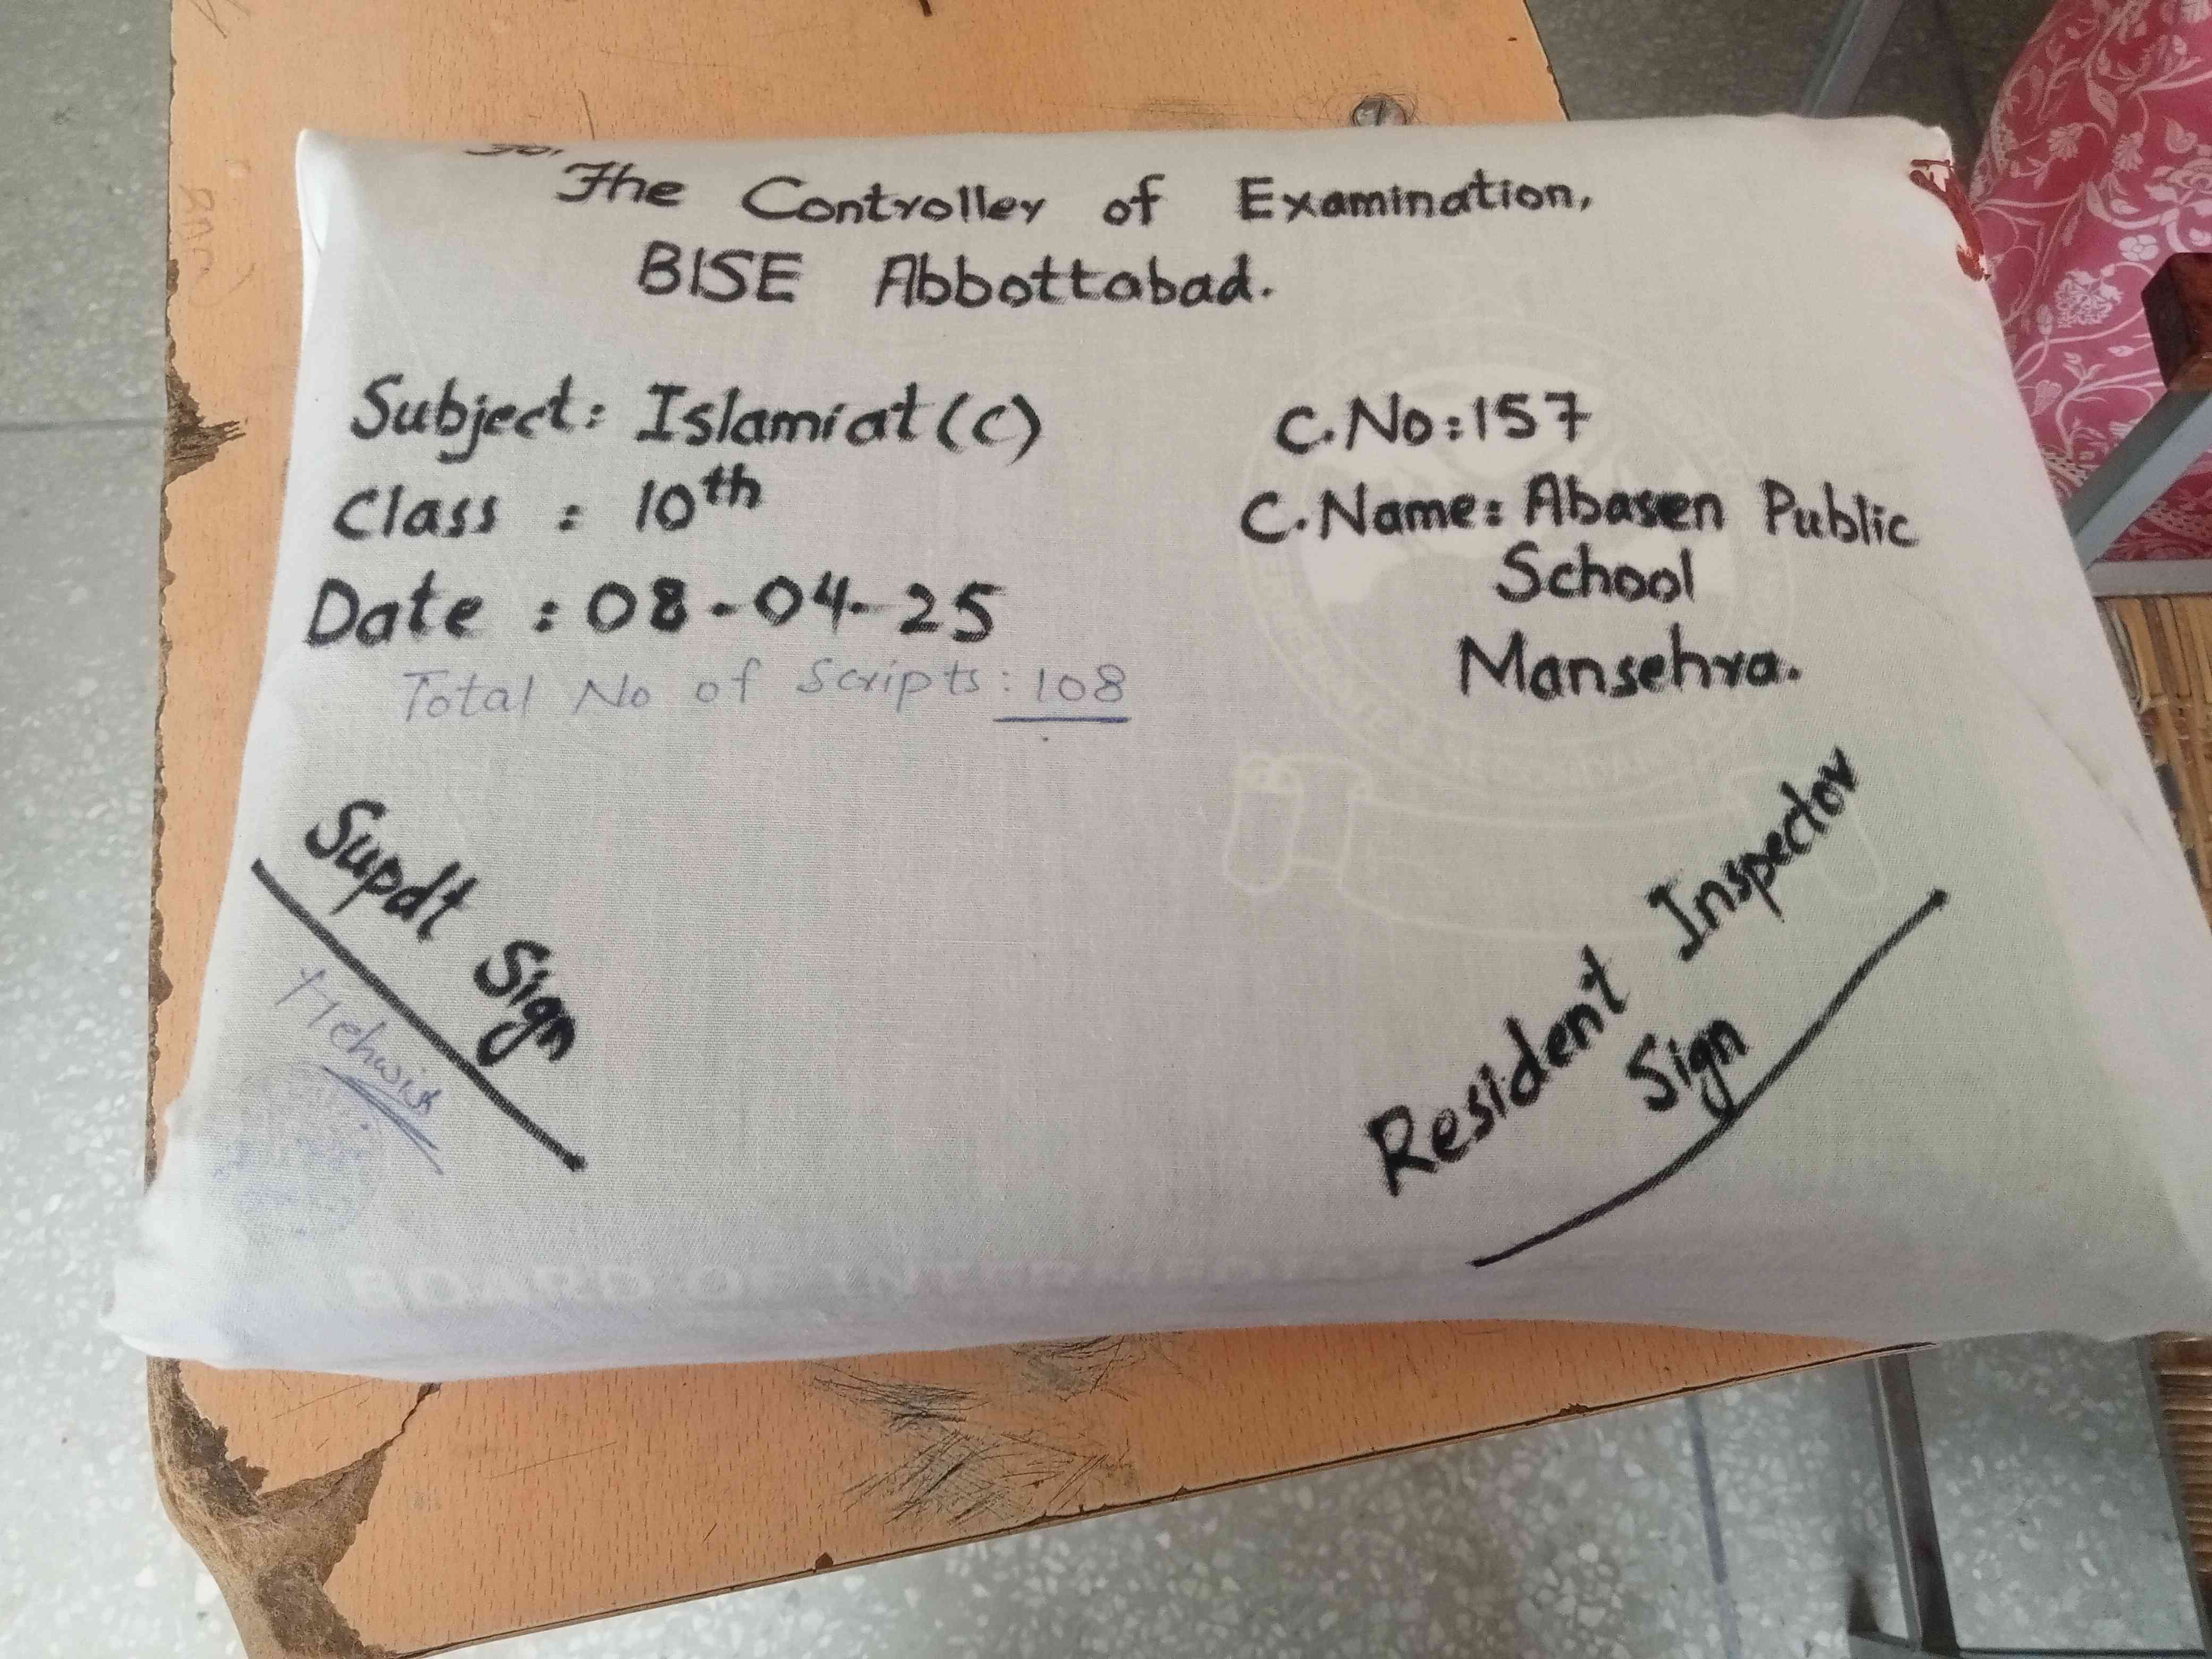 To,
The Controller of Examination,
BISE Abbottabad.
Subject: Islamiat (C)
Class : 10th
Date : 08-04-25
Total No of Scripts: 108
C.No: 157
C.Name: Abasen Public
School
Mansehra.
Supdt Sign
Mehwish
Resident Inspector
Sign
BOARD OF INTERMEDIATE